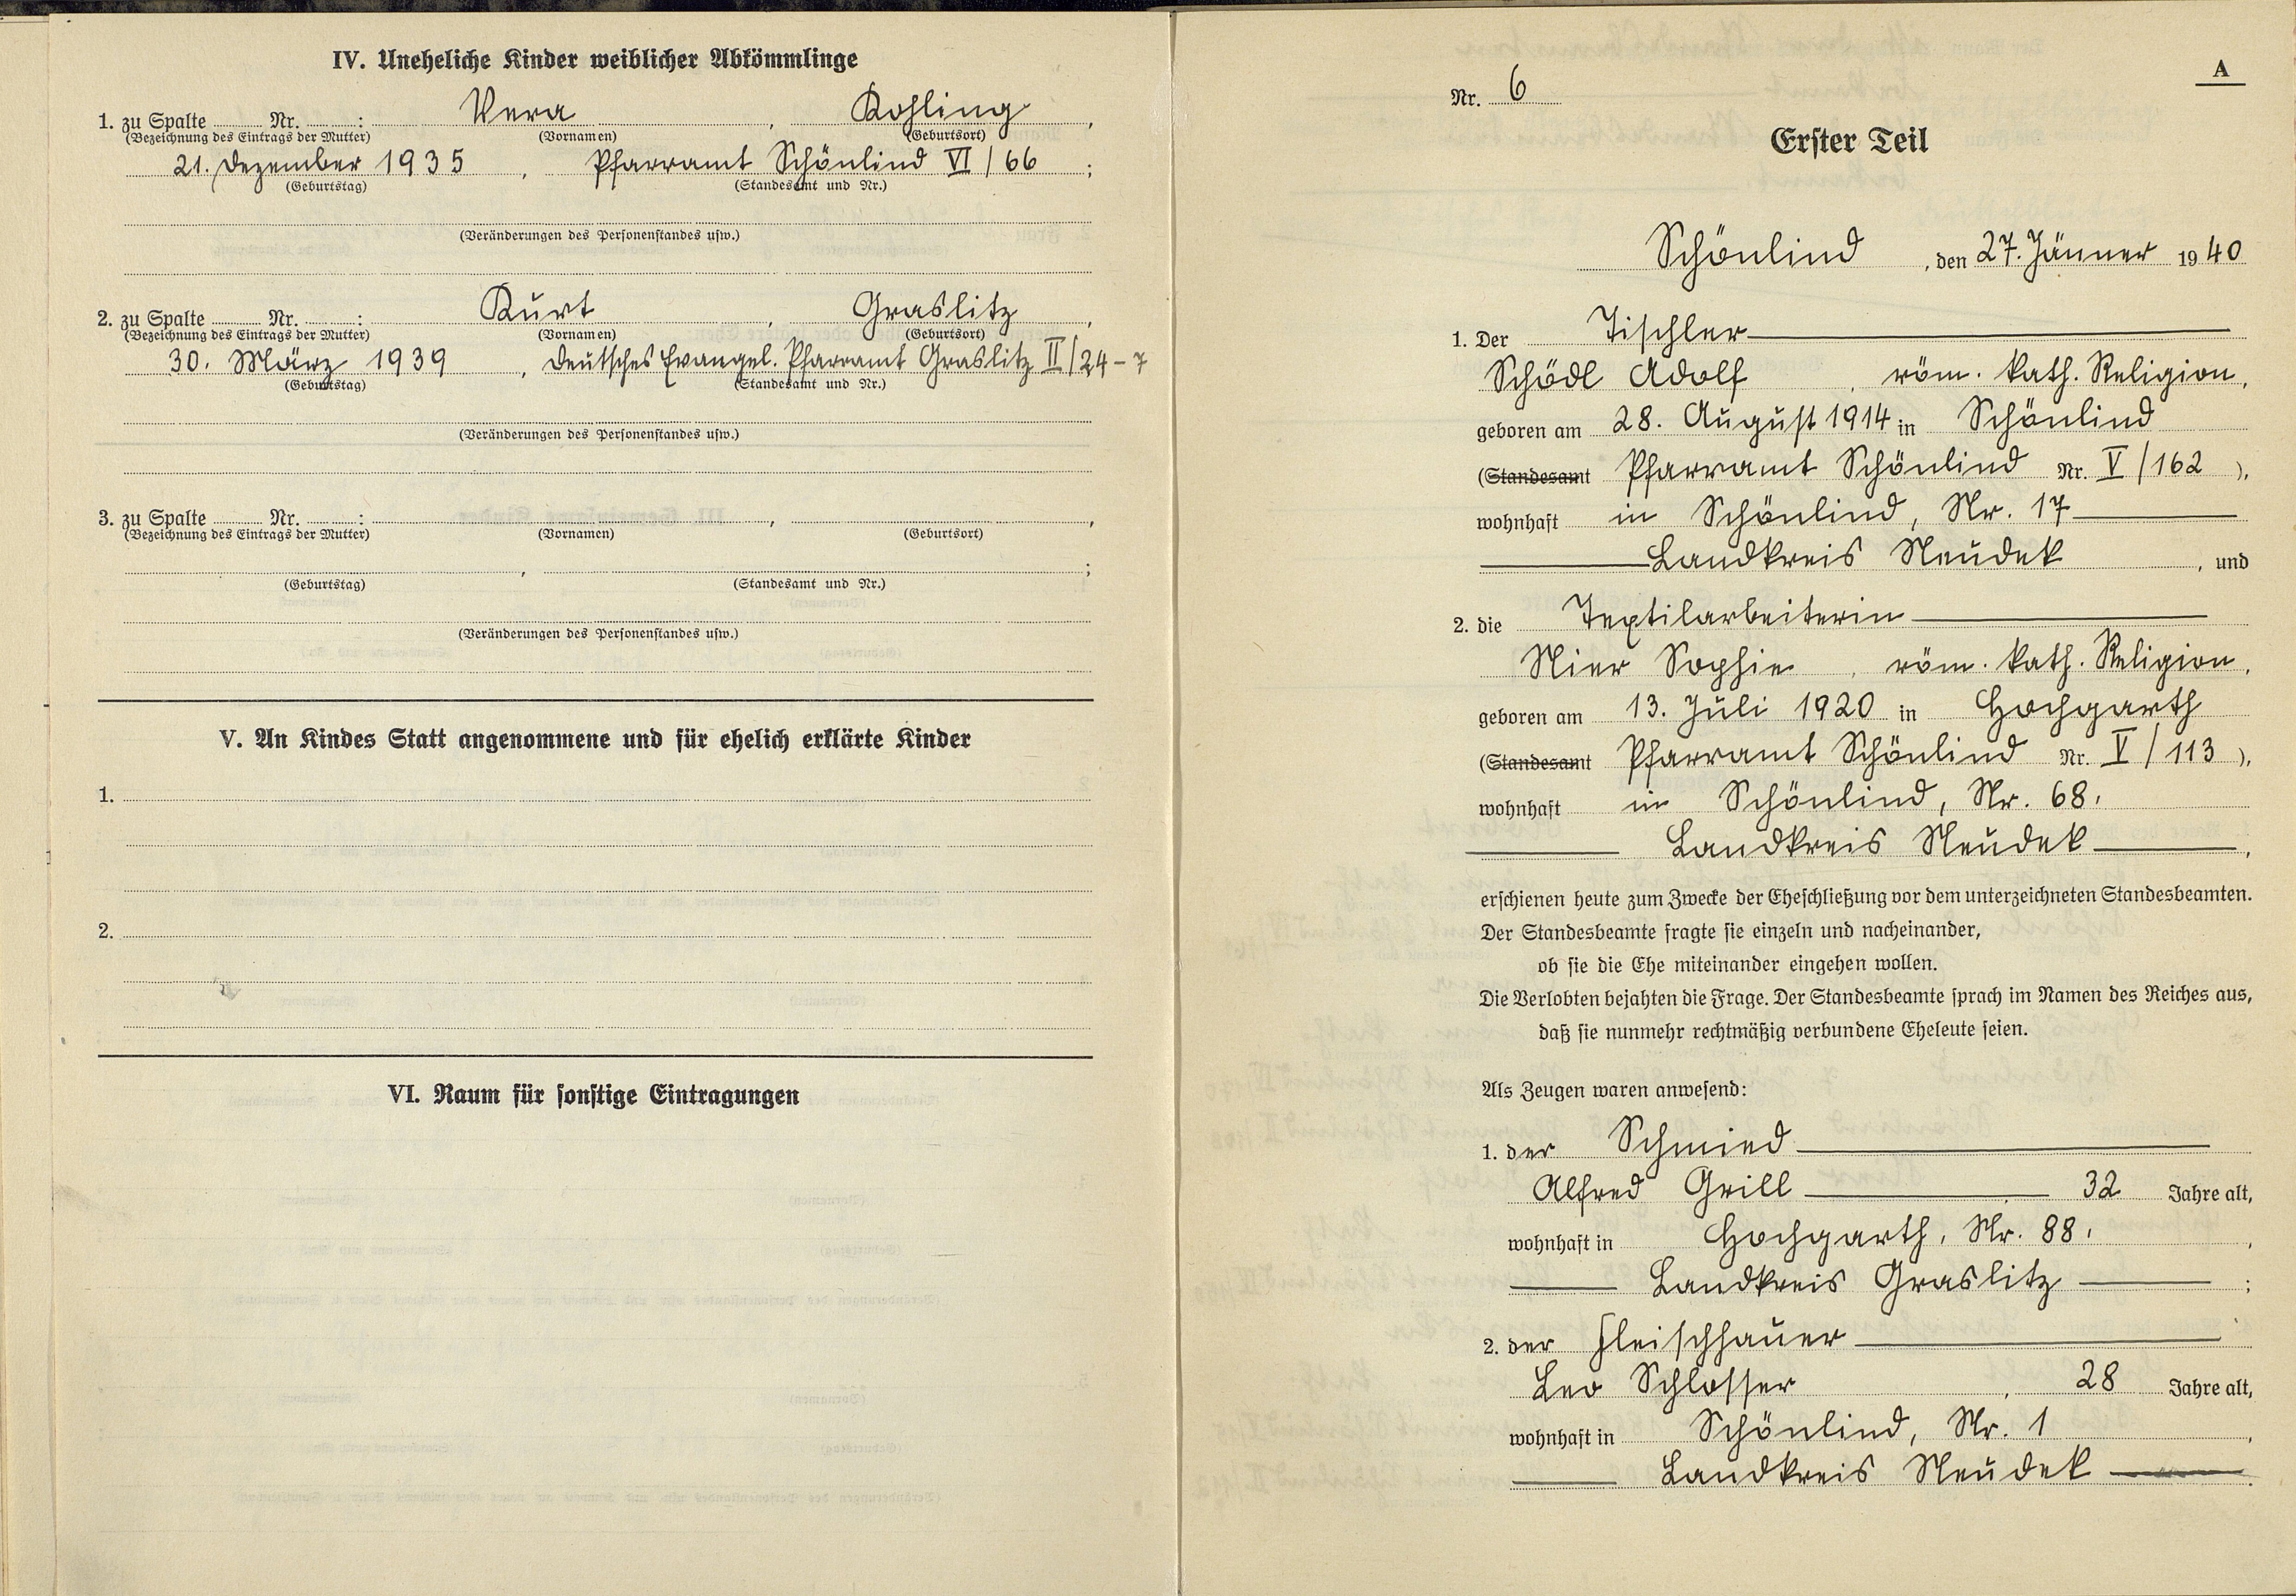 IV. Uneheliche Kinder weiblicher Abkömmlinge
1. zu Spalte Nr. : Vera , Kohling ,
(Bezeichnung des Eintrags der Mutter) (Vornamen) (Geburtsort)
21. Dezember 1935 , Pfarramt Schönlind VI / 66 ;
(Geburtstag) (Standesamt und Nr.)
(Veränderungen des Personenstandes usw.)
2. zu Spalte Nr. : Kurt , Graslitz ,
(Bezeichnung des Eintrags der Mutter) (Vornamen) (Geburtsort)
30. März 1939 , Deutsches Evangel. Pfarramt Graslitz II / 24 - 7
(Geburtstag) (Standesamt und Nr.)
(Veränderungen des Personenstandes usw.)
3. zu Spalte Nr. : , ,
(Bezeichnung des Eintrags der Mutter) (Vornamen) (Geburtsort)
, ;
(Geburtstag) (Standesamt und Nr.)
(Veränderungen des Personenstandes usw.)
V. An Kindes Statt angenommene und für ehelich erklärte Kinder
1.
2.
VI. Raum für sonstige Eintragungen
A
Nr. 6
Erster Teil
Schönlind , den 27. Jänner 1940
1. Der Tischler
Schödl Adolf , röm. kath. Religion,
geboren am 28. August 1914 in Schönlind
(Standesamt Pfarramt Schönlind Nr. V / 162 ),
wohnhaft in Schönlind, Nr. 17
Landkreis Neudek , und
2. die Textilarbeiterin
Nier Sophie , röm. kath. Religion,
geboren am 13. Juli 1920 in Hochgarth
(Standesamt Pfarramt Schönlind Nr. V / 113 ),
wohnhaft in Schönlind, Nr. 68,
Landkreis Neudek ,
erschienen heute zum Zwecke der Eheschließung vor dem unterzeichneten Standesbeamten.
Der Standesbeamte fragte sie einzeln und nacheinander,
ob sie die Ehe miteinander eingehen wollen.
Die Verlobten bejahten die Frage. Der Standesbeamte sprach im Namen des Reiches aus,
daß sie nunmehr rechtmäßig verbundene Eheleute seien.
Als Zeugen waren anwesend:
1. der Schmied
Alfred Grill , 32 Jahre alt,
wohnhaft in Hochgarth, Nr. 88, ,
Landkreis Graslitz ;
2. der Fleischhauer
Leo Schlosser , 28 Jahre alt,
wohnhaft in Schönlind, Nr. 1 ,
Landkreis Neudek .